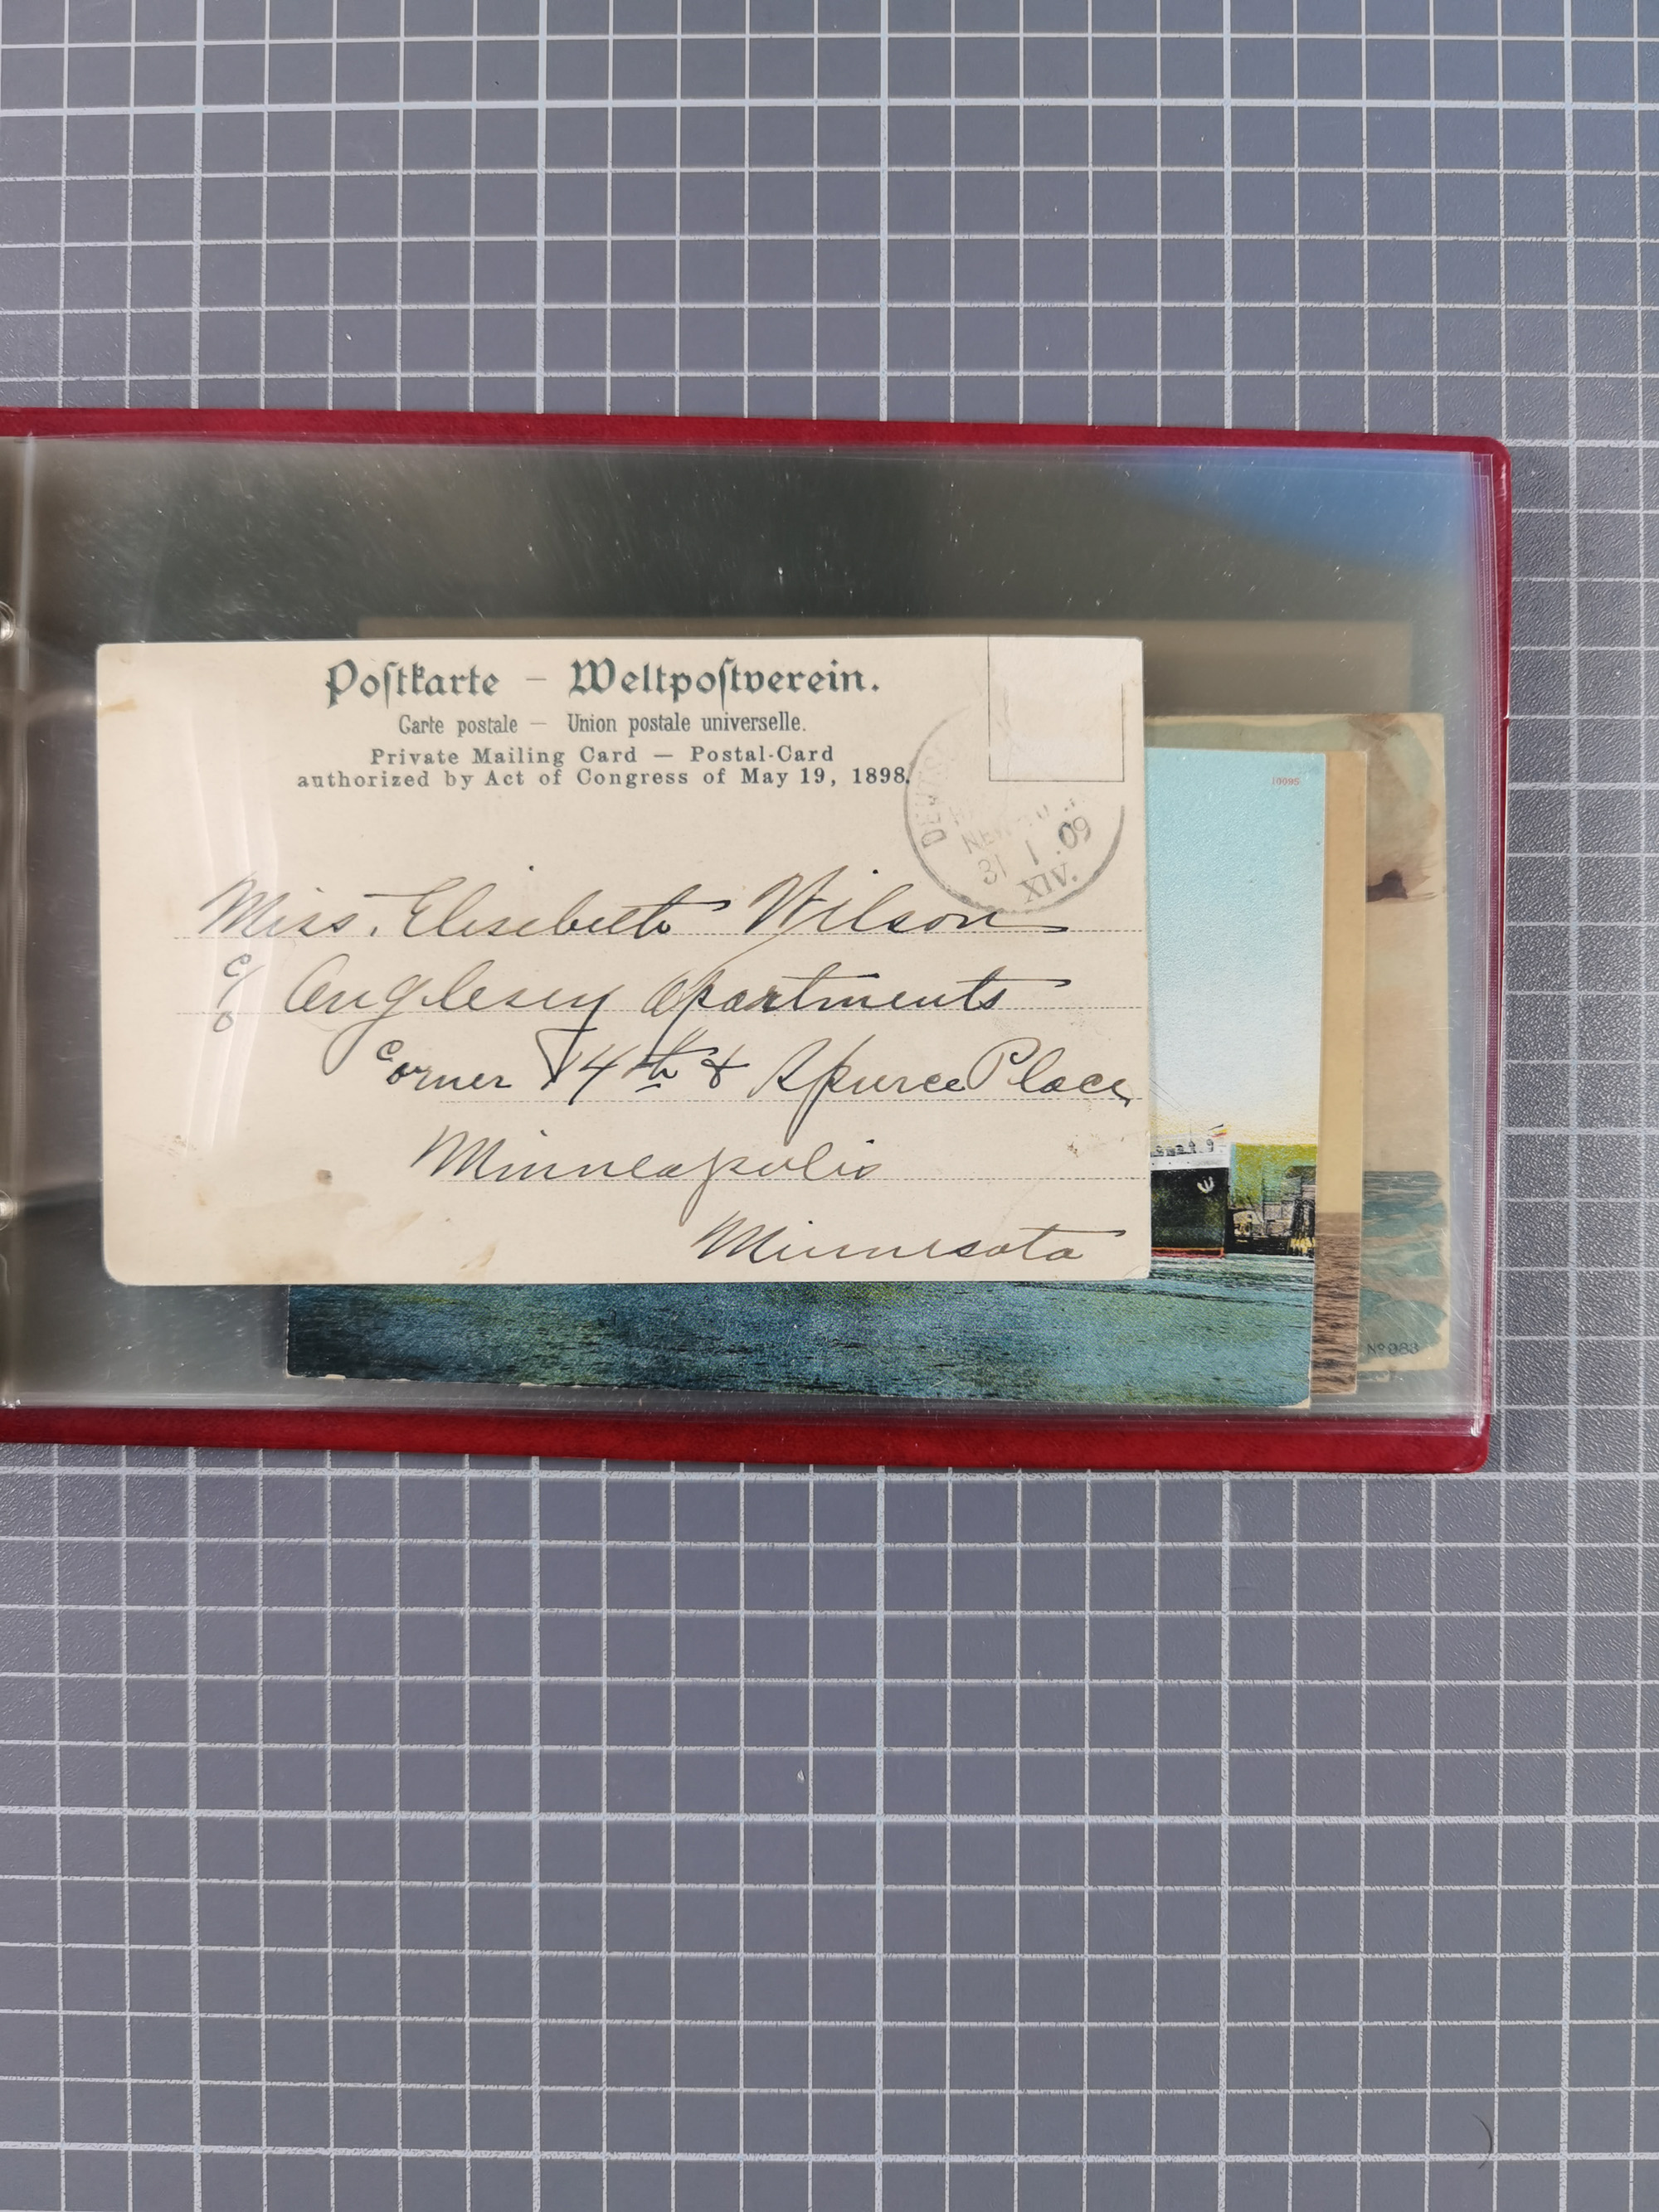 Poſtkarte – Weltpoſtverein.
Carte postale – Union postale universelle.
Private Mailing Card – Postal-Card
authorized by Act of Congress of May 19, 1898.
31 1 .09
XIV.
Miss. Elisebeth Wilson
c/o Anglesey Apartments
Corner 14th & Spurce Place
Minneapolis
Minnesota
10095
No 088